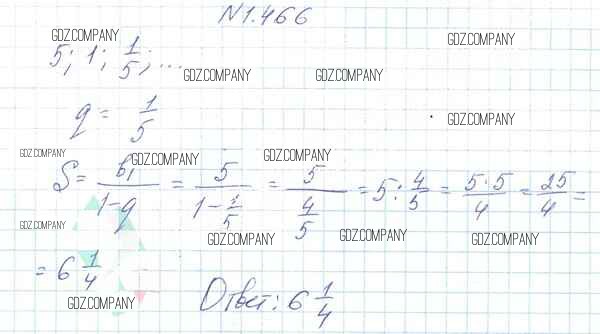 N1.466
GDZ.COMPANY
GDZ.COMPANY
5; 1; 1/5; ...
GDZ.COMPANY
GDZ.COMPANY
q = 1/5
GDZ.COMPANY
GDZ.COMPANY
GDZ.COMPANY
GDZ.COMPANY
S = b₁/(1-q) = 5/(1-1/5) = 5/(4/5) = 5 : 4/5 = 5·5/4 = 25/4 =
GDZ.COMPANY
GDZ.COMPANY
GDZ.COMPANY
GDZ.COMPANY
= 6 1/4
Ответ: 6 1/4
GDZ.COMPANY